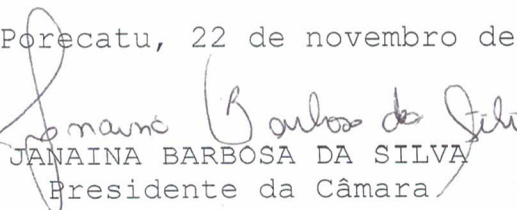 Porecatu, 22 de novembro de
Janaina Barbosa da Silv
JANAINA BARBOSA DA SILVA
Presidente da Câmara